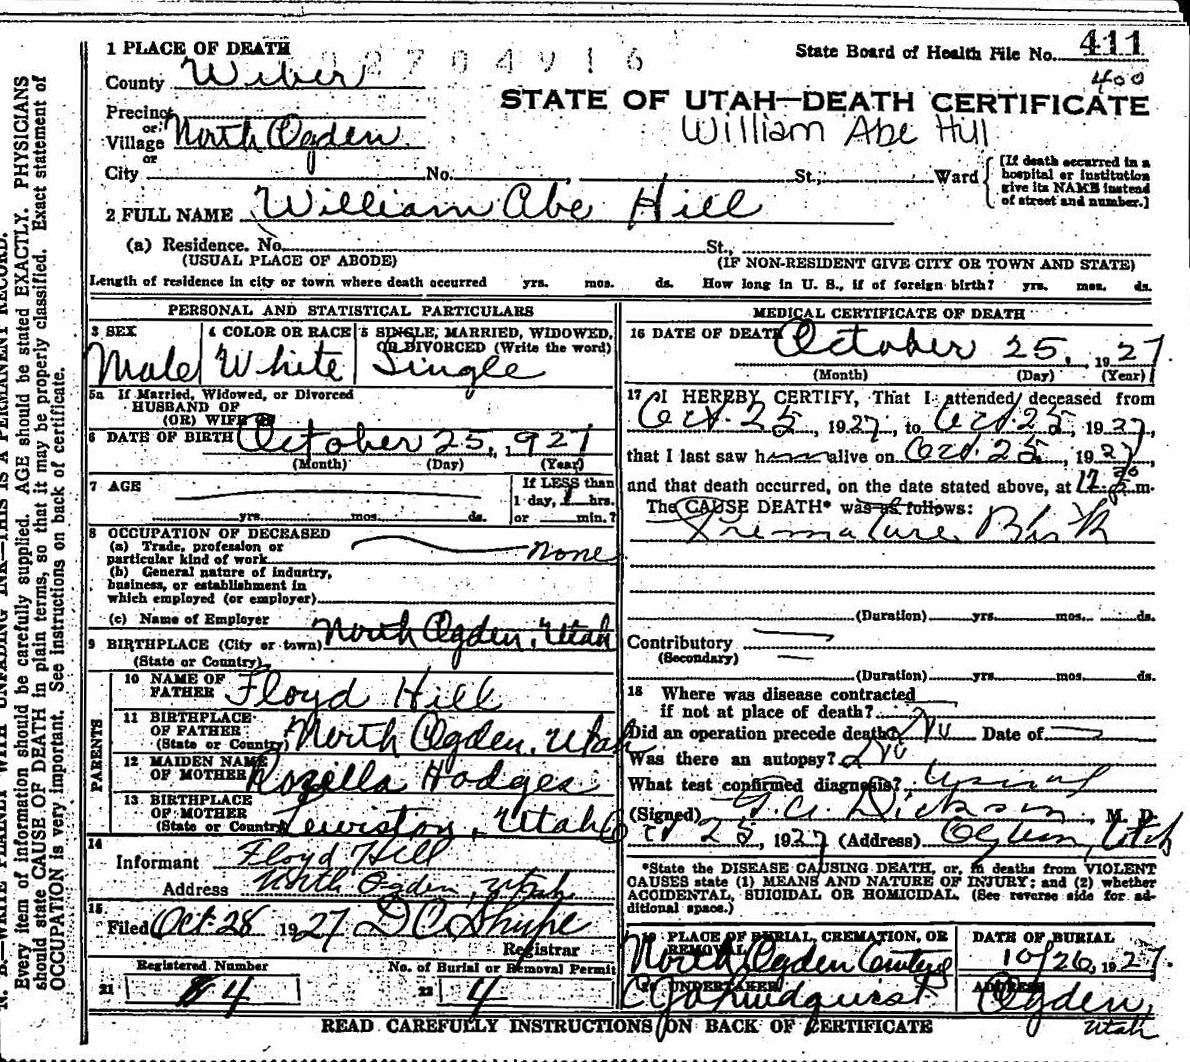 1 PLACE OF DEATH
2704916
State Board of Health File No. 411
400
County Weber
STATE OF UTAH—DEATH CERTIFICATE
William Abe Hill
Precinct
or
Village North Ogden
or
City No. St., Ward
[If death occurred in a
hospital or institution
give its NAME instead
of street and number.]
2 FULL NAME William Abe Hill
(a) Residence. No. St.,
(USUAL PLACE OF ABODE) (IF NON-RESIDENT GIVE CITY OR TOWN AND STATE)
Length of residence in city or town where death occurred yrs. mos. ds. How long in U. S., if of foreign birth? yrs. mos. ds.
PERSONAL AND STATISTICAL PARTICULARS
3 SEX
Male
4 COLOR OR RACE
White
5 SINGLE, MARRIED, WIDOWED,
OR DIVORCED (Write the word)
Single
5a If Married, Widowed, or Divorced
HUSBAND OF
(OR) WIFE OF
6 DATE OF BIRTH October 25, 1927
(Month) (Day) (Year)
7 AGE
yrs. mos. ds.
If LESS than
1 day, 1 hrs.
or min.?
8 OCCUPATION OF DECEASED
(a) Trade, profession or
particular kind of work none
(b) General nature of industry,
business, or establishment in
which employed (or employer)
(c) Name of Employer
9 BIRTHPLACE (City or town) North Ogden, Utah
(State or Country)
PARENTS
10 NAME OF
FATHER Floyd Hill
11 BIRTHPLACE
OF FATHER
(State or Country) North Ogden, Utah
12 MAIDEN NAME
OF MOTHER Rozella Hodges
13 BIRTHPLACE
OF MOTHER
(State or Country) Lewiston, Utah
14
Informant Floyd Hill
Address North Ogden, Utah
15
Filed Oct 28 1927 D C Shupe
Registrar
Registered Number
21 84
No. of Burial or Removal Permit
22 4
MEDICAL CERTIFICATE OF DEATH
16 DATE OF DEATH October 25, 1927.
(Month) (Day) (Year)
17 I HEREBY CERTIFY, That I attended deceased from
Oct. 25, 1927, to Oct. 25, 1927,
that I last saw him alive on Oct. 25, 1927
and that death occurred, on the date stated above, at 12 m.
The CAUSE DEATH* was as follows:
Premature Birth
(Duration) yrs. mos. ds.
Contributory
(Secondary)
(Duration) yrs. mos. ds.
18 Where was disease contracted
if not at place of death?
Did an operation precede death? No Date of
Was there an autopsy? No
What test confirmed diagnosis?
(Signed) Dickson, M. D.
Oct 25, 1927 (Address) Ogden, Utah
*State the DISEASE CAUSING DEATH, or, in deaths from VIOLENT
CAUSES state (1) MEANS AND NATURE OF INJURY; and (2) whether
ACCIDENTAL, SUICIDAL OR HOMICIDAL. (See reverse side for ad-
ditional space.)
19 PLACE OF BURIAL, CREMATION, OR
REMOVAL
North Ogden
DATE OF BURIAL
10/26, 1927.
20 UNDERTAKER
ADDRESS
Ogden,
Utah
READ CAREFULLY INSTRUCTIONS ON BACK OF CERTIFICATE
N. B.—WRITE PLAINLY WITH UNFADING INK—THIS IS A PERMANENT RECORD.
Every item of information should be carefully supplied. AGE should be stated EXACTLY. PHYSICIANS
should state CAUSE OF DEATH in plain terms, so that it may be properly classified. Exact statement of
OCCUPATION is very important. See instructions on back of certificate.